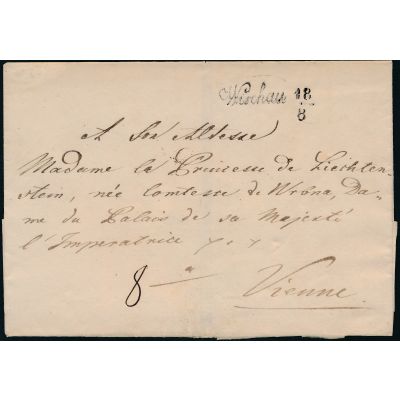 Wischau 18/8
A Son Altesse
Madame la Princesse de Liechten-
stein, née Comtesse de Wrbna, Da-
me du Palais de sa Majesté
l'Imperatrice
8
Vienne.